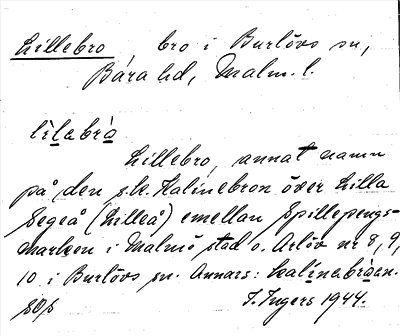 Lillebro, bro i Burlövs sn,
Bara hd, Malm. l.
lìlabrà
Lillebro, annat namn
på den s.k. Kalinebron över Lilla
Segeå (Lilleå) emellan Spillepengs-
marken i Malmö stad o. Arlöv nr 8, 9,
10 i Burlövs sn. Annars:
I. Ingers 1944.